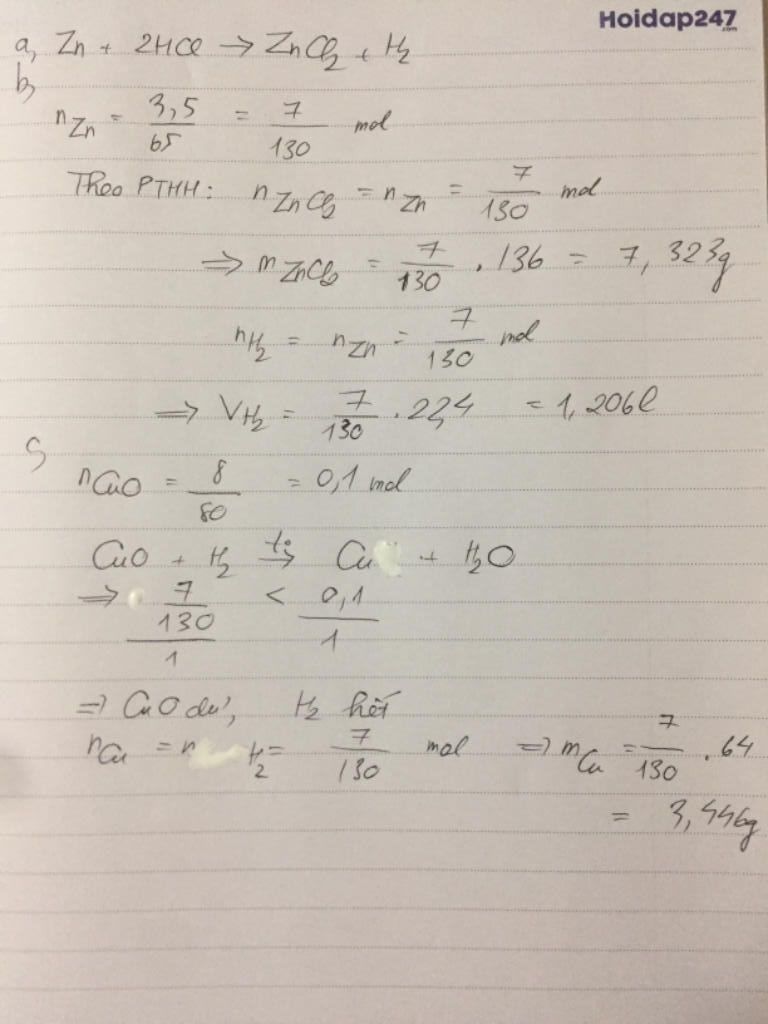 Hoidap247.com
a, Zn + 2HCl → ZnCl2 + H2
b,
nZn = 3,5/65 = 7/130 mol
Theo PTHH: nZnCl2 = nZn = 7/130 mol
=> mZnCl2 = 7/130 . 136 = 7,323g
nH2 = nZn = 7/130 mol
=> VH2 = 7/130 . 22,4 = 1,206l
c,
nCuO = 8/80 = 0,1 mol
CuO + H2 t°→ Cu + H2O
=> 7/130/1 < 0,1/1
=> CuO dư, H2 hết
nCu = nH2 = 7/130 mol => mCu = 7/130 . 64
= 3,446g